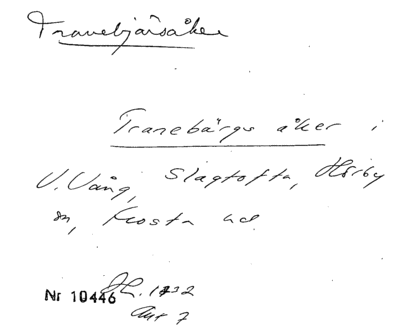 Tranebjärsåker
Tranebärgs åker i
V. Vång, Slagtofta, Hörby
sn, Frosta hd
Nr 10446 JH. 1732
Akt 7